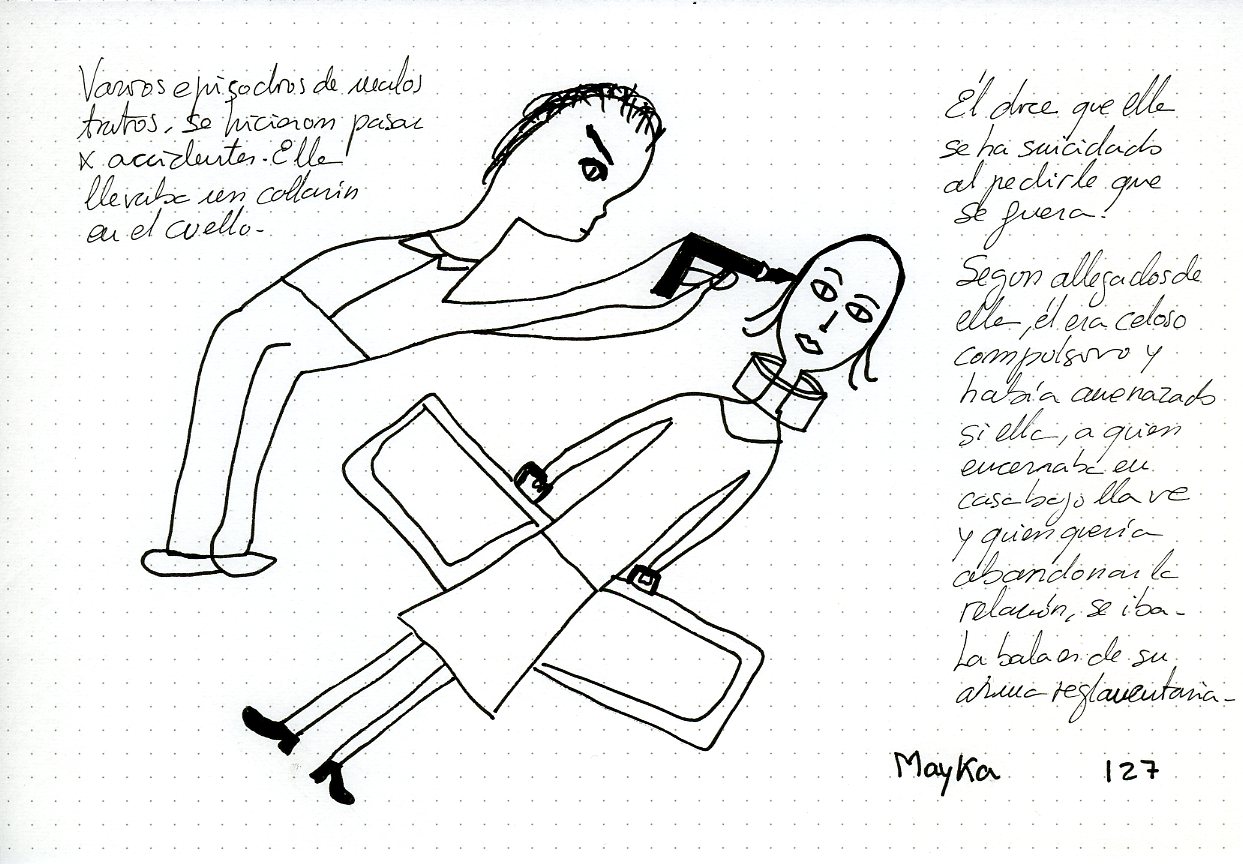 Varios episodios de malos
tratos, se hicieron pasar
x accidentes. Ella
llevaba un collarín
en el cuello.
Él dice que ella
se ha suicidado
al pedirle que
se fuera.
Segun allegados de
ella, él era celoso
compulsivo y
había amenazado
si ella, a quien
encerraba en
casa bajo llave
y quien quería
abandonar la
relación, se iba.
La bala es de su
arma reglamentaria.
Mayka 127